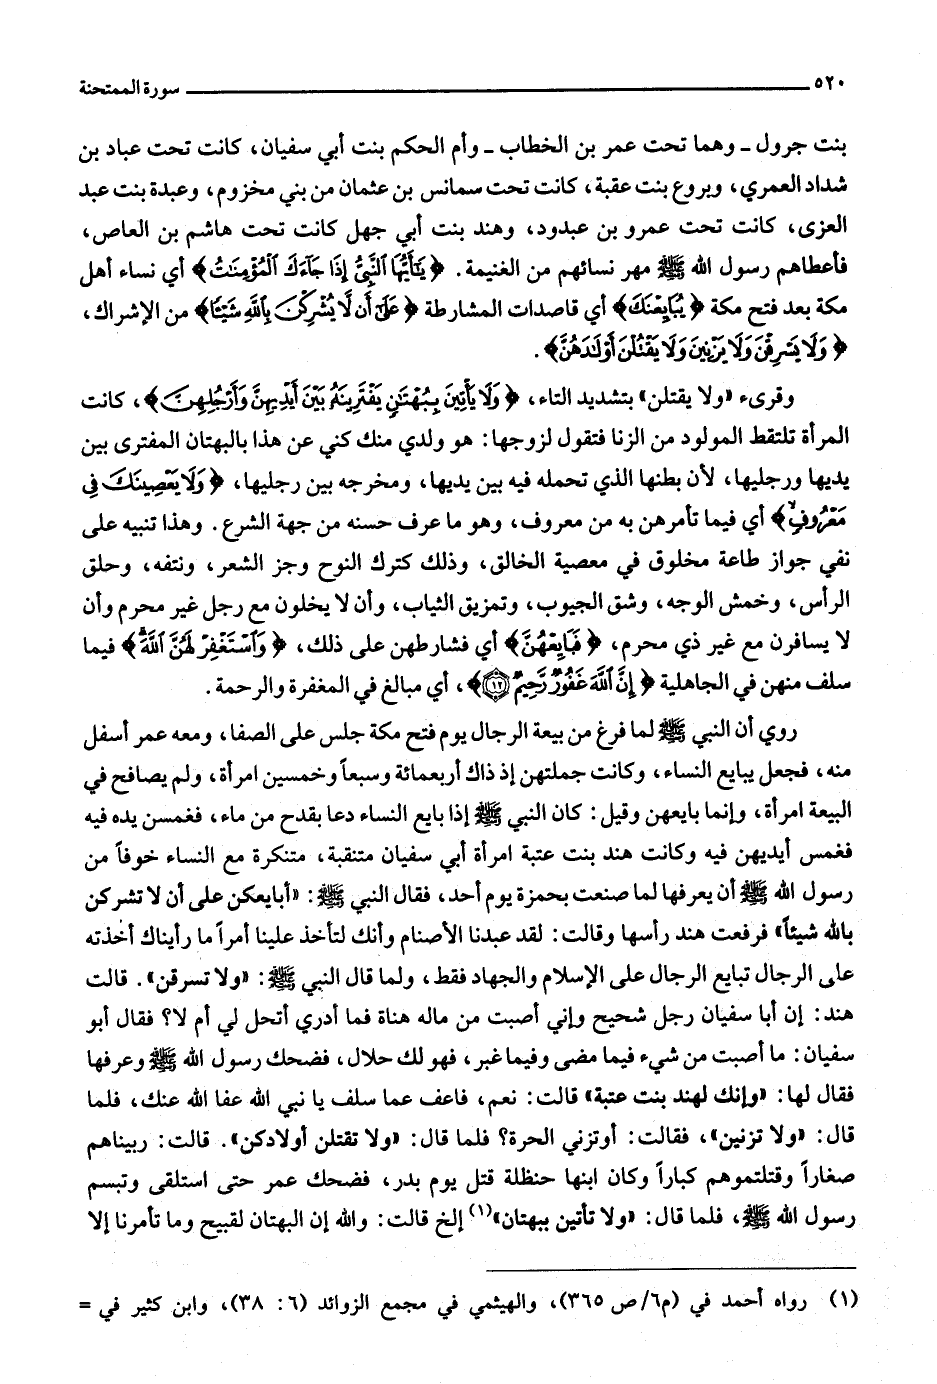 ٥٢٠ سورة الممتحنة
بنت جرول ـ وهما تحت عمر بن الخطاب ـ وأم الحكم بنت أبي سفيان، كانت تحت عباد بن
شداد العمري، وبروع بنت عقبة، كانت تحت سماسن بن عثمان من بني مخزوم، وعبدة بنت عبد
العزى، كانت تحت عمرو بن عبدود، وهند بنت أبي جهل كانت تحت هاشم بن العاص،
فأعطاهم رسول الله ﷺ مهر نسائهم من الغنيمة. ﴿يَٰٓأَيُّهَا ٱلنَّبِيُّ إِذَا جَآءَكَ ٱلْمُؤْمِنَٰتُ﴾ أي نساء أهل
مكة بعد فتح مكة ﴿يُبَايِعْنَكَ﴾ أي قاصدات المشارطة ﴿عَلَىٰٓ أَن لَّا يُشْرِكْنَ بِٱللَّهِ شَيْـًٔا﴾ من الإشراك،
﴿وَلَا يَسْرِقْنَ وَلَا يَزْنِينَ وَلَا يَقْتُلْنَ أَوْلَٰدَهُنَّ﴾.
وقرىء «ولا يقتلن» بتشديد التاء، ﴿وَلَا يَأْتِينَ بِبُهْتَٰنٍ يَفْتَرِينَهُۥ بَيْنَ أَيْدِيهِنَّ وَأَرْجُلِهِنَّ﴾، كانت
المرأة تلتقط المولود من الزنا فتقول لزوجها: هو ولدي منك كني عن هذا بالبهتان المفترى بين
يديها ورجليها، لأن بطنها الذي تحمله فيه بين يديها، ومخرجه بين رجليها، ﴿وَلَا يَعْصِينَكَ فِى
مَعْرُوفٍۙ﴾ أي فيما تأمرهن به من معروف، وهو ما عرف حسنه من جهة الشرع. وهذا تنبيه على
نفي جواز طاعة مخلوق في معصية الخالق، وذلك كترك النوح وجز الشعر، ونتفه، وحلق
الرأس، وخمش الوجه، وشق الجيوب، وتمزيق الثياب، وأن لا يخلون مع رجل غير محرم وأن
لا يسافرن مع غير ذي محرم، ﴿فَبَايِعْهُنَّ﴾ أي فشارطهن على ذلك، ﴿وَٱسْتَغْفِرْ لَهُنَّ ٱللَّهَۖ﴾ فيما
سلف منهن في الجاهلية ﴿إِنَّ ٱللَّهَ غَفُورٌ رَّحِيمٌ ⁧١٢⁩﴾، أي مبالغ في المغفرة والرحمة.
روي أن النبي ﷺ لما فرغ من بيعة الرجال يوم فتح مكة جلس على الصفا، ومعه عمر أسفل
منه، فجعل يبايع النساء، وكانت جملتهن إذ ذاك أربعمائة وسبعاً وخمسين امرأة، ولم يصافح في
البيعة امرأة، وإنما بايعهن وقيل: كان النبي ﷺ إذا بايع النساء دعا بقدح من ماء، فغمسن يده فيه
فغمس أيديهن فيه وكانت هند بنت عتبة امرأة أبي سفيان متنقبة، متنكرة مع النساء خوفاً من
رسول الله ﷺ أن يعرفها لما صنعت بحمزة يوم أحد، فقال النبي ﷺ: «أبايعكن على أن لا تشركن
بالله شيئاً» فرفعت هند رأسها وقالت: لقد عبدنا الأصنام وأنك لتأخذ علينا أمراً ما رأيناك أخذته
على الرجال تبايع الرجال على الإسلام والجهاد فقط، ولما قال النبي ﷺ: «ولا تسرقن». قالت
هند: إن أبا سفيان رجل شحيح وإني أصبت من ماله هناة فما أدري أتحل لي أم لا؟ فقال أبو
سفيان: ما أصبت من شيء فيما مضى وفيما غبر، فهو لك حلال، فضحك رسول الله ﷺ وعرفها
فقال لها: «وإنك لهند بنت عتبة» قالت: نعم، فاعف عما سلف يا نبي الله عفا الله عنك، فلما
قال: «ولا تزنين»، فقالت: أوتزني الحرة؟ فلما قال: «ولا تقتلن أولادكن». قالت: ربيناهم
صغاراً وقتلتموهم كباراً وكان ابنها حنظلة قتل يوم بدر، فضحك عمر حتى استلقى وتبسم
رسول الله ﷺ، فلما قال: «ولا تأتين ببهتان»(١) إلخ قالت: والله إن البهتان لقبيح وما تأمرنا إلا
(١) رواه أحمد في (م٦/ص ٣٦٥)، والهيثمي في مجمع الزوائد (٦: ٣٨)، وابن كثير في =